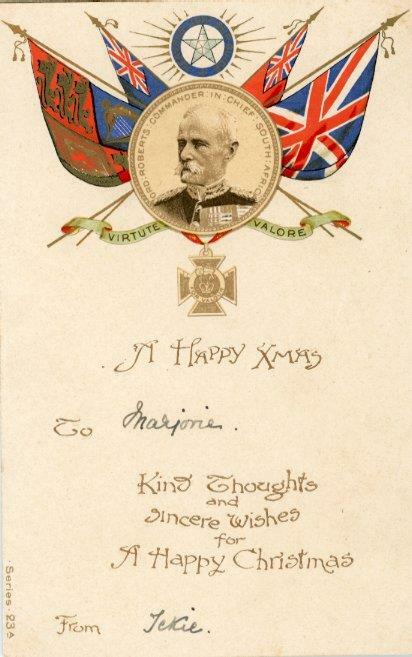 LORD·ROBERTS·COMMANDER·IN·CHIEF·SOUTH·AFRICA
VIRTUTE VALORE
FOR VALOUR
A Happy Xmas
To Marjorie.
Kind Thoughts
and
Sincere Wishes
for
A Happy Christmas
From Ickie.
·Series·23A